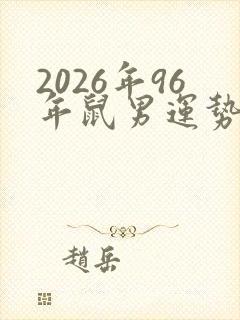 2026年96
年鼠男運勢
趙岳